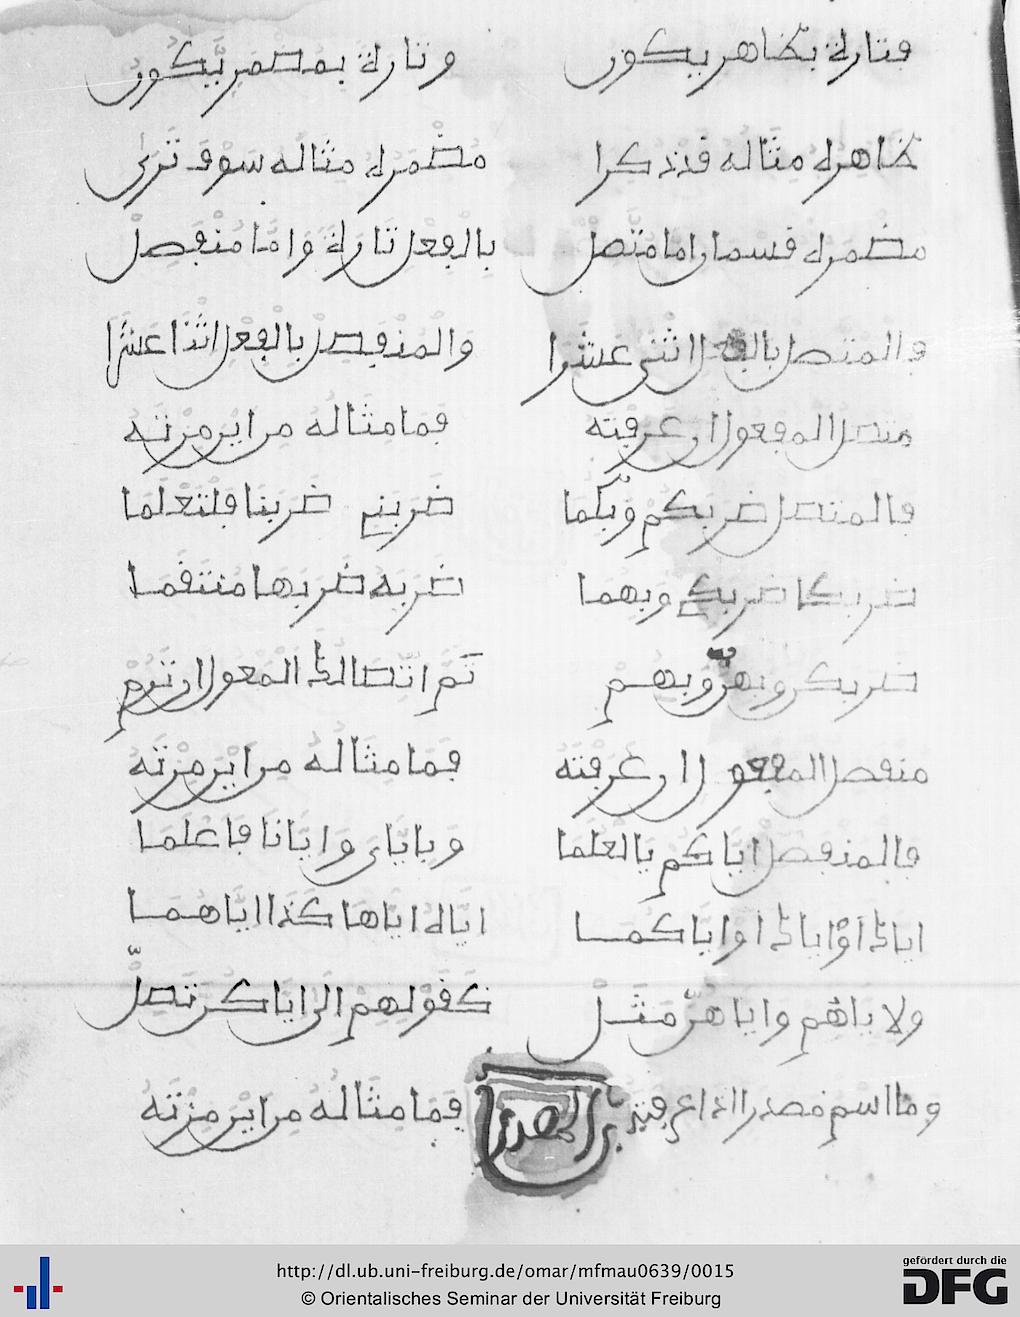 فتارة بظاهر يكون وتارة بمضمر يكون
ظاهره مثاله قد ذكرا مضمره مثاله سوف ترى
مضمره قسمان اما متصل بالفعل تارة واما منفصل
والمتصل بالفعل اثنى عشرا والمنفصل بالفعل اثنا عشرا
متصل المفعول ان عرفته فما مثاله من اين مزته
فالمتصل ضربكم وبكما ضربني ضربنا فلتعلما
ضربكا ضربك وبهما ضربه ضربها منتقما
ضربكن وبهن وبهم تم اتصال المعول ان تروم
منفصل المفعول ان عرفته فما مثاله من اين مزته
فالمنفصل اياكم يا لعلما وياياى وايانا فاعلما
اياك او اياك او اياكما اياه اياها كذا اياهما
ولا ياهم واياهن مثل كقولهم الى اياكن تصل
وما اسم مصدر اذا عرفته باب المصدر فما مثاله من اين مزته
http://dl.ub.uni-freiburg.de/omar/mfmau0639/0015
© Orientalisches Seminar der Universität Freiburg
gefördert durch die
DFG